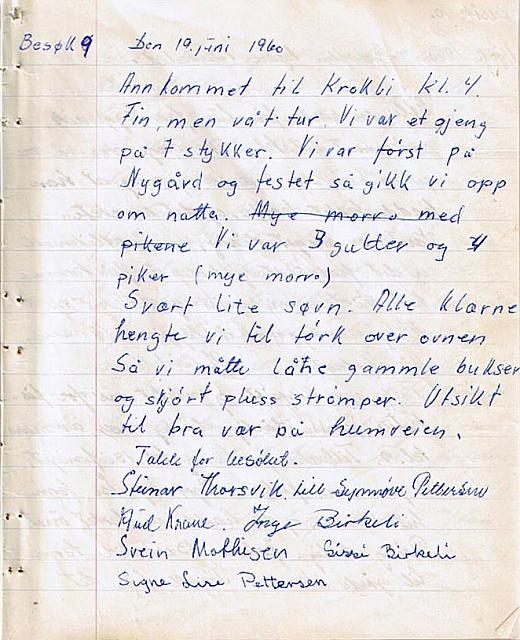 Besøk 9 Den 19. juni 1960
Ann kommet til Krokli kl. 4.
Fin, men våt tur. Vi var et gjeng
på 7 stykker. Vi var først på
Nygård og festet så gikk vi opp
om natta. Mye morro med
pikene Vi var 3 gutter og 4
piker (mye morro)
Svært lite søvn. Alle klærne
hengte vi til tørk over ovnen
Så vi måtte låhe gammle bukser
og skjørt pluss strømper. Utsikt
til bra vær på humveien.
Takk for besøket.
Steinar Thorsvik, Synnøve Pettersen
Krane. Inge Birkeli
Svein Mathisen Sissi Birkeli
Signe Lise Pettersen